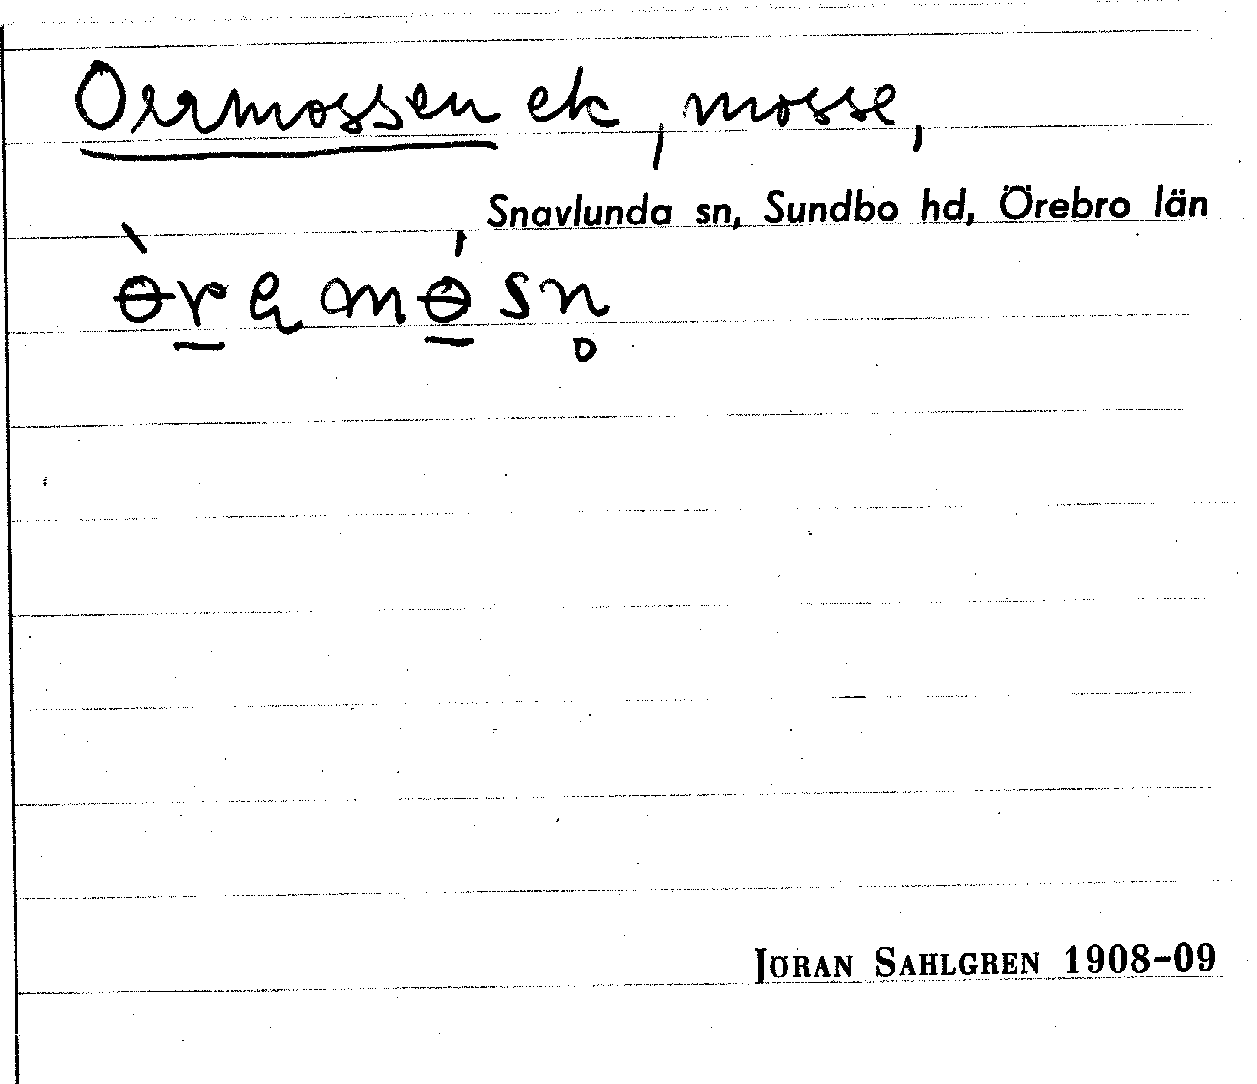 Orrmossen ek, mosse,
Snavlunda sn, Sundbo hd, Örebro län
ɵ̀r̠ąmɵ̠́sn̥
JÖRAN SAHLGREN 1908-09